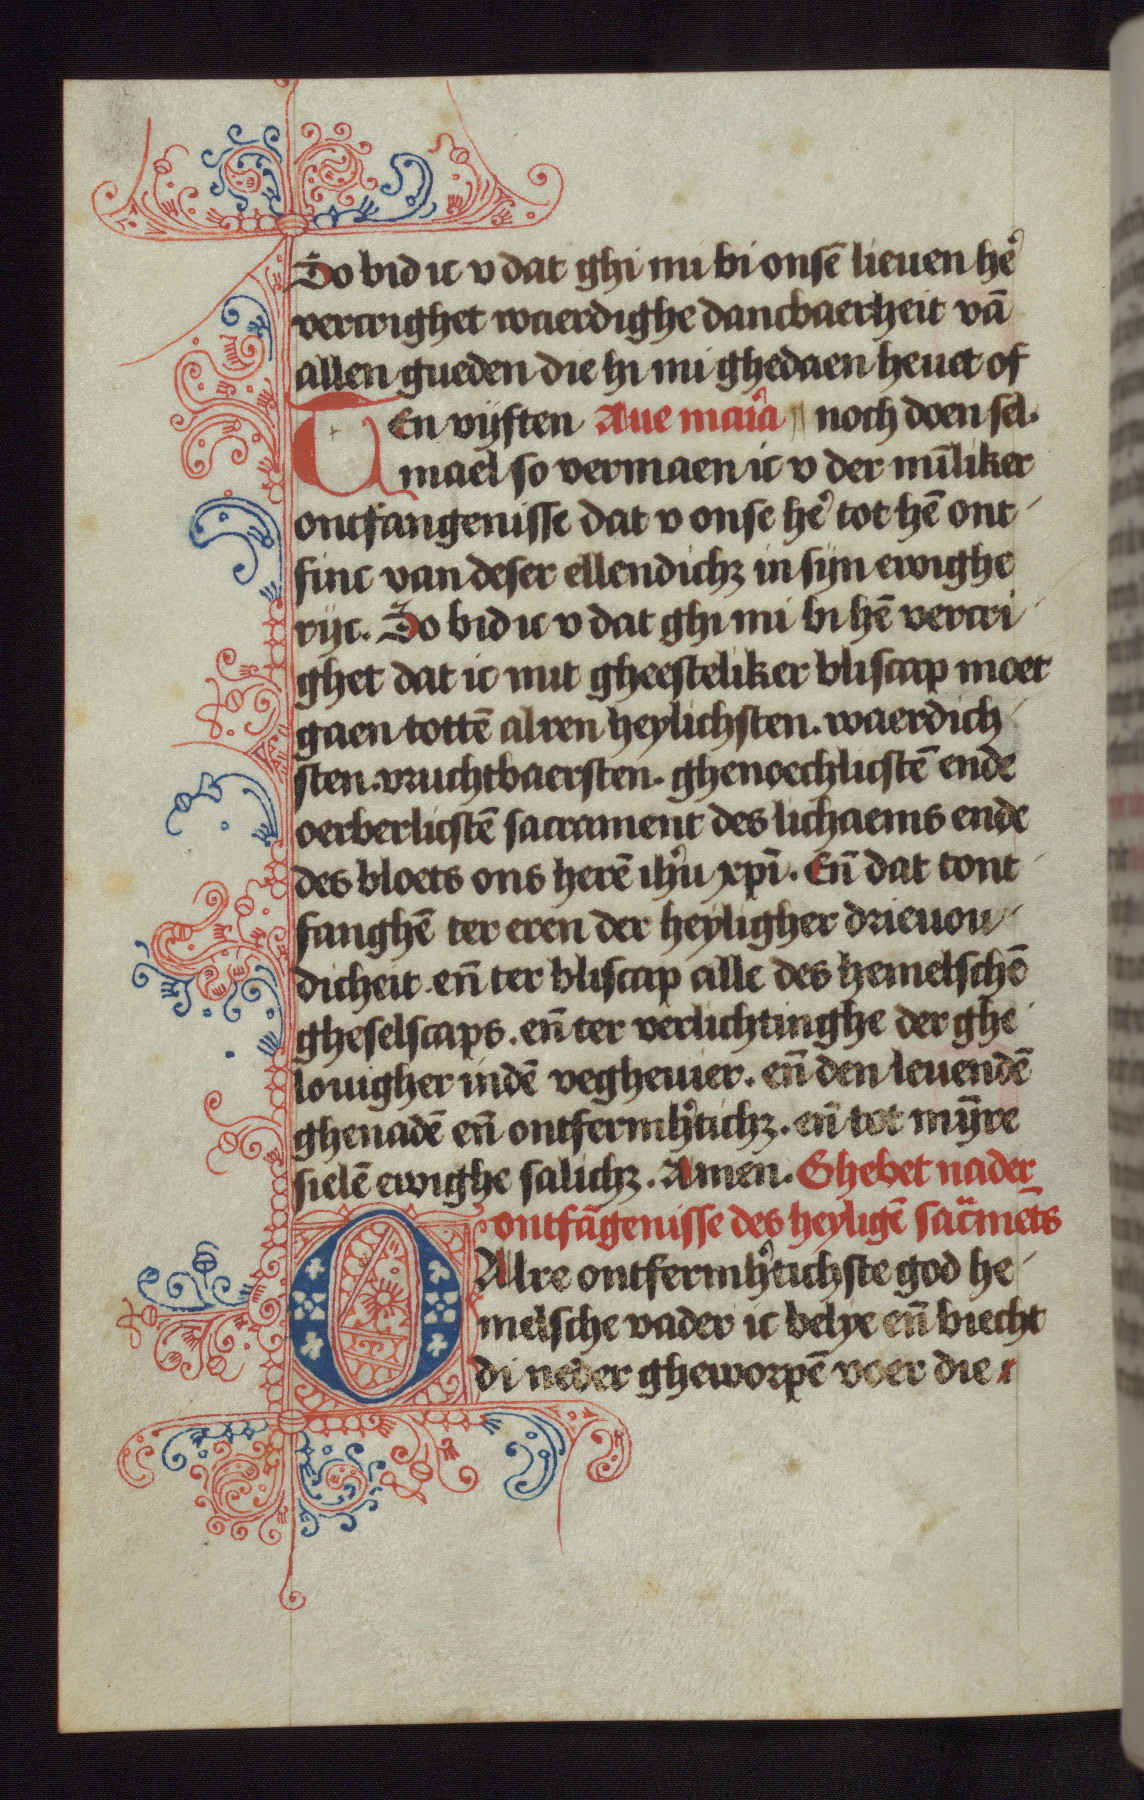 So bid ic v dat ghi mi bi onsē lieuen hē
vercrighet waerdighe dancbaerheit vā
allen gueden die hi mi ghedaen heuet of
TEn vijften Aue maria noch doen sel.
mael so vermaen ic v der mīliker
ontfangenisse dat v onse hē tot hē ont
finc van deser ellendichꝫ in sijn ewighe
rijc. So bid ic v dat ghi mi bi hē vercri
ghet dat ic mit gheesteliker bliscap moet
gaen tottē alren heylichsten. waerdich
sten. vruchtbaersten. ghenoechlicstē ende
oerberlicstē sacrament des lichaems ende
des bloets ons herē ihū xpī. En̄ dat tont
fanghē ter eren der heyligher drieuou
dicheit. en̄ ter bliscap alle des hemelschē
gheselscaps. en̄ ter verlichtinghe der ghe
louigher indē veghevier. en̄ den leuendē
ghenadē en̄ ontfermh'tichꝫ. en̄ tot mȳre
sielē ewighe salichꝫ. Amen. Ghebet na der
ontfāgenisse des heyligē sacͣmēts
OAlre ontfermh'tichste god he
melsche vader ic belye en̄ biecht
di neder gheworpē voer die